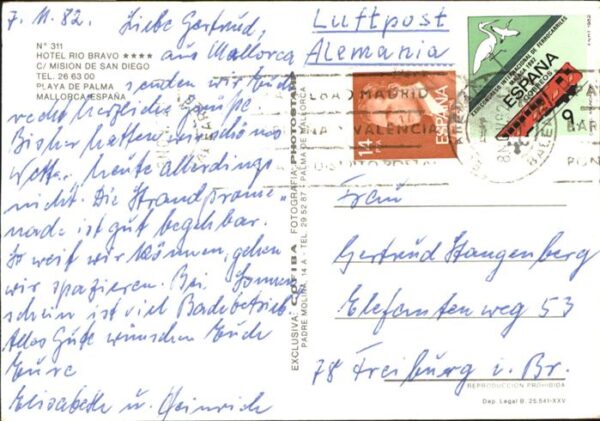 7. 11. 82. Liebe Gertrud,
N° 311
HOTEL RIO BRAVO ★★★★
C/ MISION DE SAN DIEGO
TEL. 26 63 00
PLAYA DE PALMA
MALLORCA-ESPAÑA
aus Mallorca
senden wir Euch
recht herzliche Grüße.
Bisher hatten wir schönes
Wetter, heute allerdings
nicht. Die Strandprome-
nade ist gut begehbar.
So weit wir können, gehen
wir spazieren. Bei Sonnen-
schein ist viel Badebetrieb.
Alles Gute wünschen Euch
Eure
Elisabeth u. Heinrich
EXCLUSIVA: COFIBA FOTOGRAFIA: PHOTOSTARP
PADRE MOLINA, 14 A - TEL. 29 52 87 - PALMA DE MALLORCA
Luftpost
Alemania
14
PTA
ESPAÑA
ESPAÑA
CORREOS
9
MADRID
VALENCIA
POSTAL
Frau
Gertrud Stangenberg
Elefantenweg 53
78 Freiburg i. Br.
REPRODUCCION PROHIBIDA
Dep. Legal B. 25.541-XXV